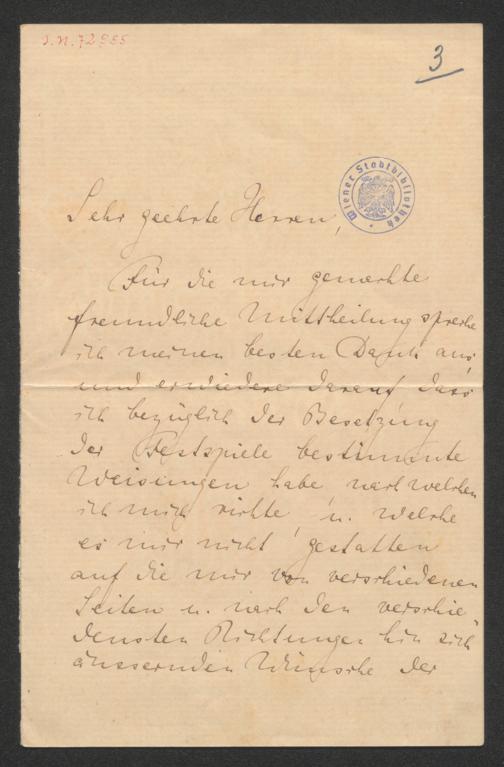 J.N. 72955
3
Wiener Stadtbibliothek
Sehr geehrte Herren,
Für die mir gemachte
freundliche Mittheilung spreche
ich meinen besten Dank aus
und erwiedere darauf dass
ich bezüglich der Besetzung
der Festspiele bestimmte
Weisungen habe, nach welchen
ich mich richte, u. welche
es mir nicht gestatten
auf die mir von verschiedenen
Seiten u. nach den verschie-
densten Richtungen hin sich
äussernden Wünsche der